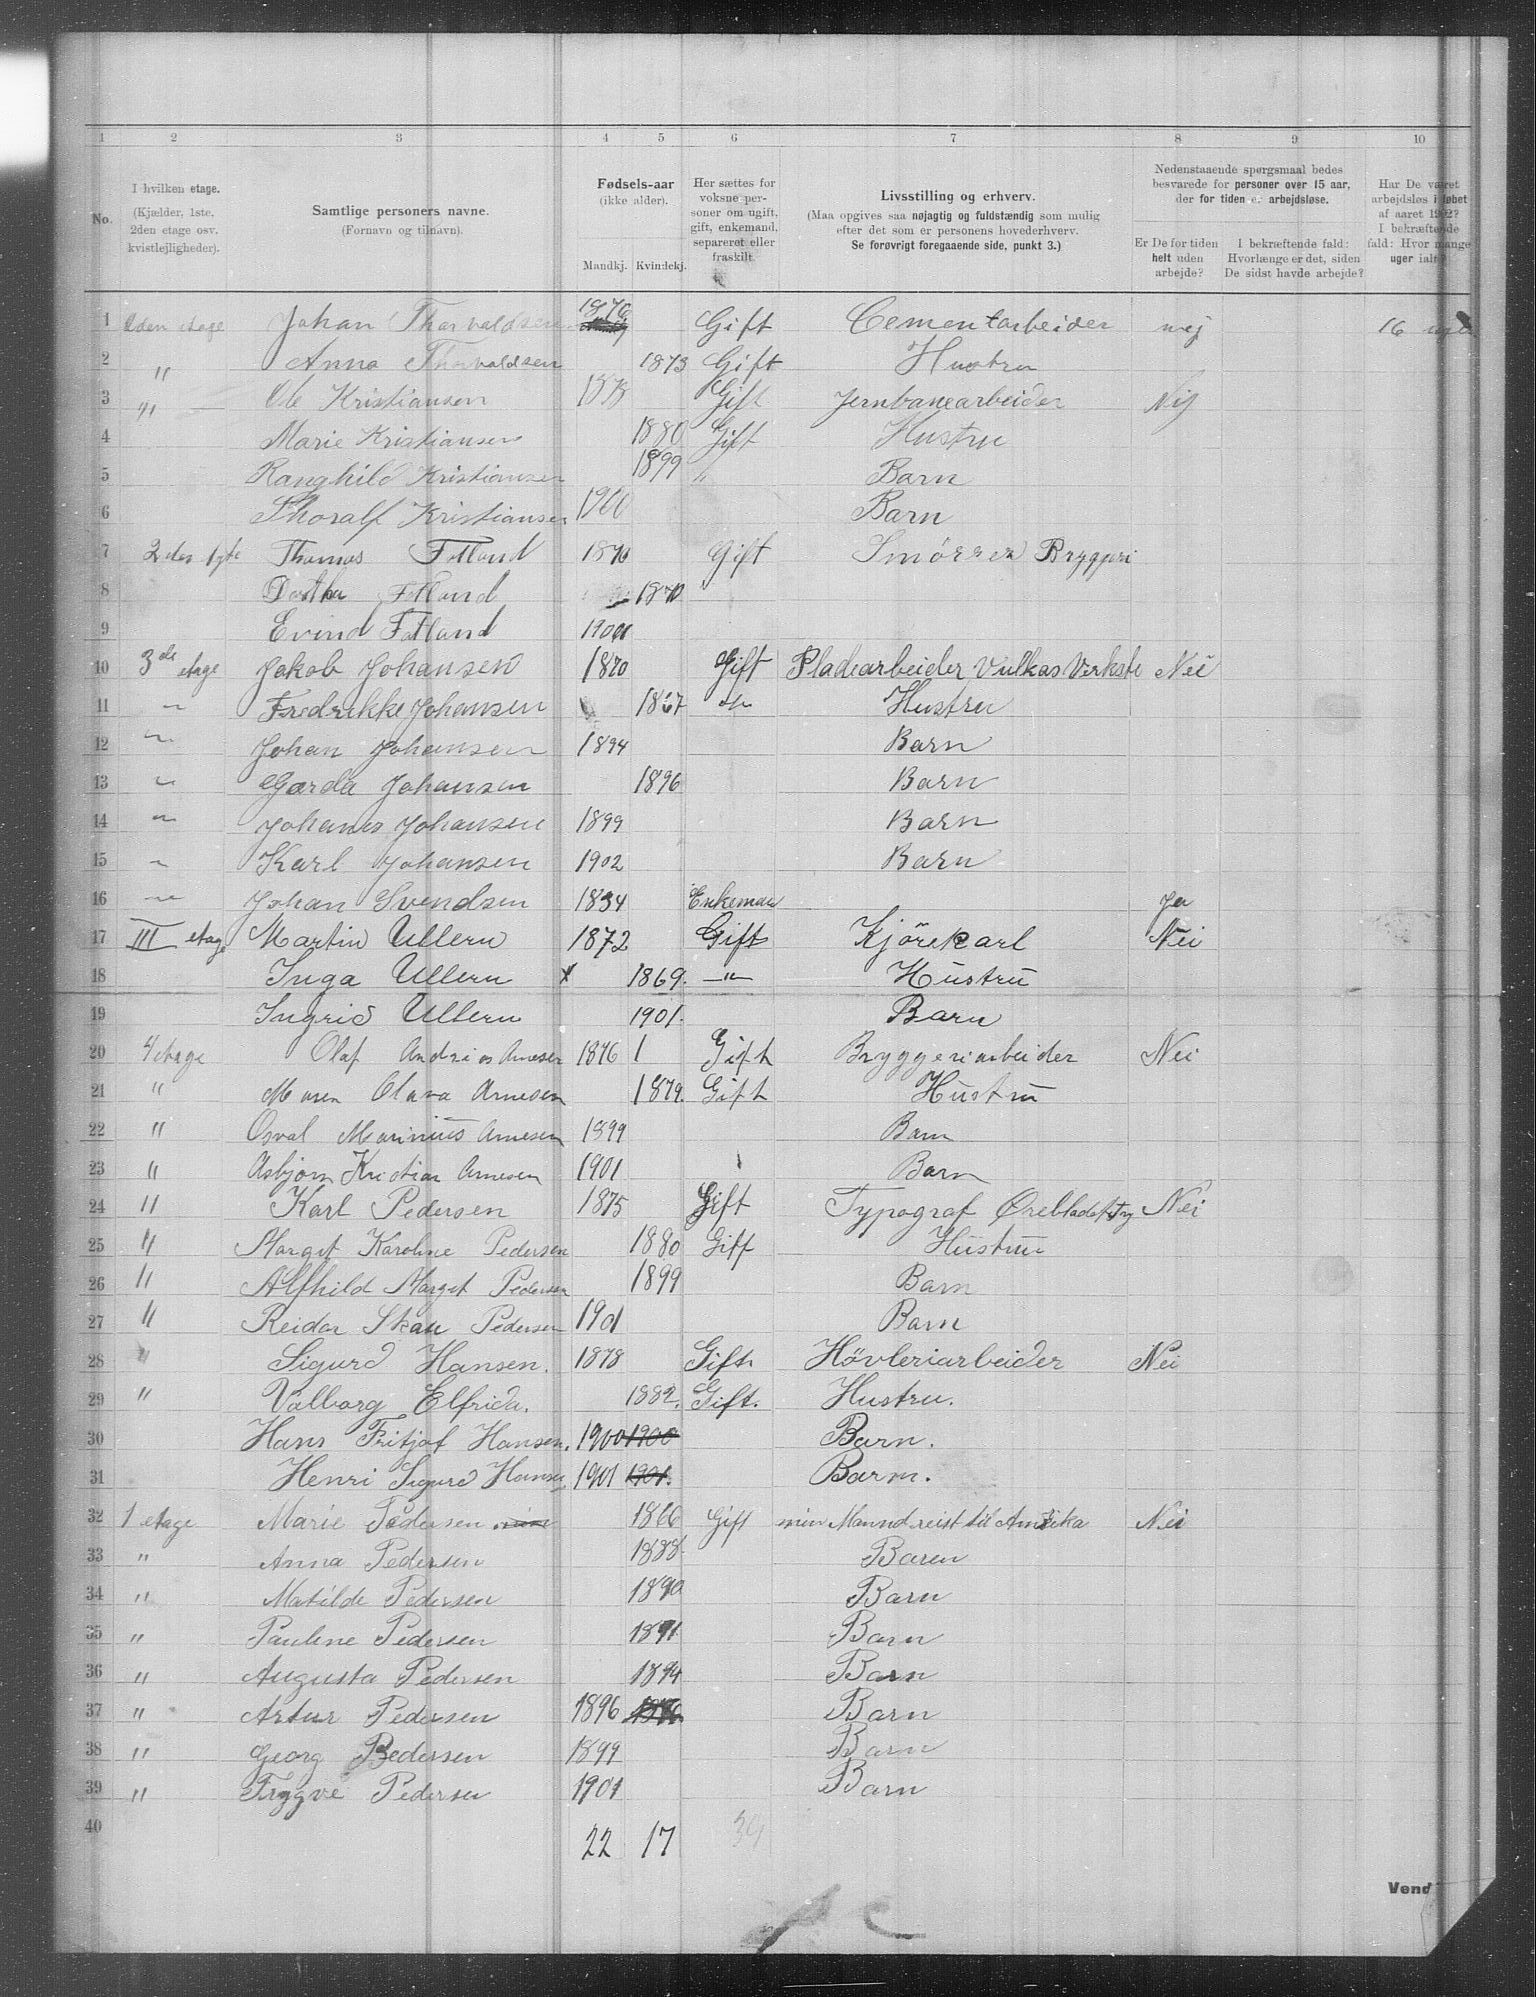 1 2 3 4 5 6 7 8 9 10
No. I hvilken etage. (Kjælder, 1ste, 2den etage osv. kvistlejligheder). Samtlige personers navne. (Fornavn og tilnavn). Fødsels-aar (ikke alder). Mandkj. Kvindekj. Her sættes for voksne personer om ugift, gift, enkemand, separeret eller fraskilt. Livsstilling og erhverv. (Maa opgives saa nøjagtig og fuldstændig som mulig efter det som er personens hovederhverv. Se forøvrigt foregaaende side, punkt 3.) Nedenstaaende spørgsmaal bedes besvarede for personer over 15 aar, der for tiden er arbejdsløse. Er De for tiden helt uden arbejde? I bekræftende fald: Hvorlænge er det, siden De sidst havde arbejde? Har De været arbejdsløs i løbet af aaret 1902? I bekræftende fald: Hvor mange uger ialt?
1 2den etage Johan Thorvaldsen 1876 Gift Cementarbeider nej 16
2 " Anna Thorvaldsen 1873 Gift Hustru
3 " Ole Kristiansen 1873 Gift Jernbanearbeider Nej
4 Marie Kristiansen 1880 Gift Hustru
5 Ranghild Kristiansen 1899 " Barn
6 Thoralf Kristiansen 1900 Barn
7 2den Thomas Fotland 1870 Gift Smörrer Bryggeri
8 Dortha Fotland 1870
9 Evind Fotland 1900
10 3de etage Jakob Johansen 1870 Gift Pladearbeider Vulkas Verkste Nei
11 " Fredrikke Johansen 1867 " Hustru
12 " Johan Johansen 1894 Barn
13 " Gærda Johansen 1896 Barn
14 " Johanes Johansen 1899 Barn
15 " Karl Johansen 1902 Barn
16 " Johan Svendsen 1834 Enkeman Ja
17 III etage Martin Ullern 1872 Gift Kjörekarl Nei
18 Inga Ullern x 1869. " Hustru
19 Ingrid Ullern 1901. Barn
20 4 etage Olaf Andrias Arnesen 1876 1 Gift Bryggeriarbeider Nei
21 " Maren Olava Arnesen 1879. Gift Hustru
22 " Osval Marinius Arnesen 1899 Barn
23 " Asbjørn Kristian Arnesen 1901 Barn
24 " Karl Pedersen 1875 Gift Typograf Ørebladet Nei
25 " Margit Karoline Pedersen 1880 Gift Hustru
26 " Alfhild Margit Pedersen 1899 Barn
27 " Reidar Skau Pedersen 1901 Barn
28 " Sigurd Hansen. 1878 Gift Hövleriarbeider Nei
29 " Valborg Elfrida. 1882. Gift. Hustru.
30 Hans Fritjof Hansen. 1900 1900 Barn.
31 Henri Sigurd Hansen 1901 1901. Barn.
32 1 etage Marie Pedersen 1866 Gift min Mannd reist til Amerika Nei
33 " Anna Pedersen 1888 Baren
34 " Matilde Pedersen 1890 Barn
35 " Pauline Pedersen 1891 Barn
36 " Augusta Pedersen 1894 Barn
37 " Artur Pedersen 1896 Barn
38 " Georg Pedersen 1899 Barn
39 " Trygve Pedersen 1901 Barn
40 22 17 39
Vend